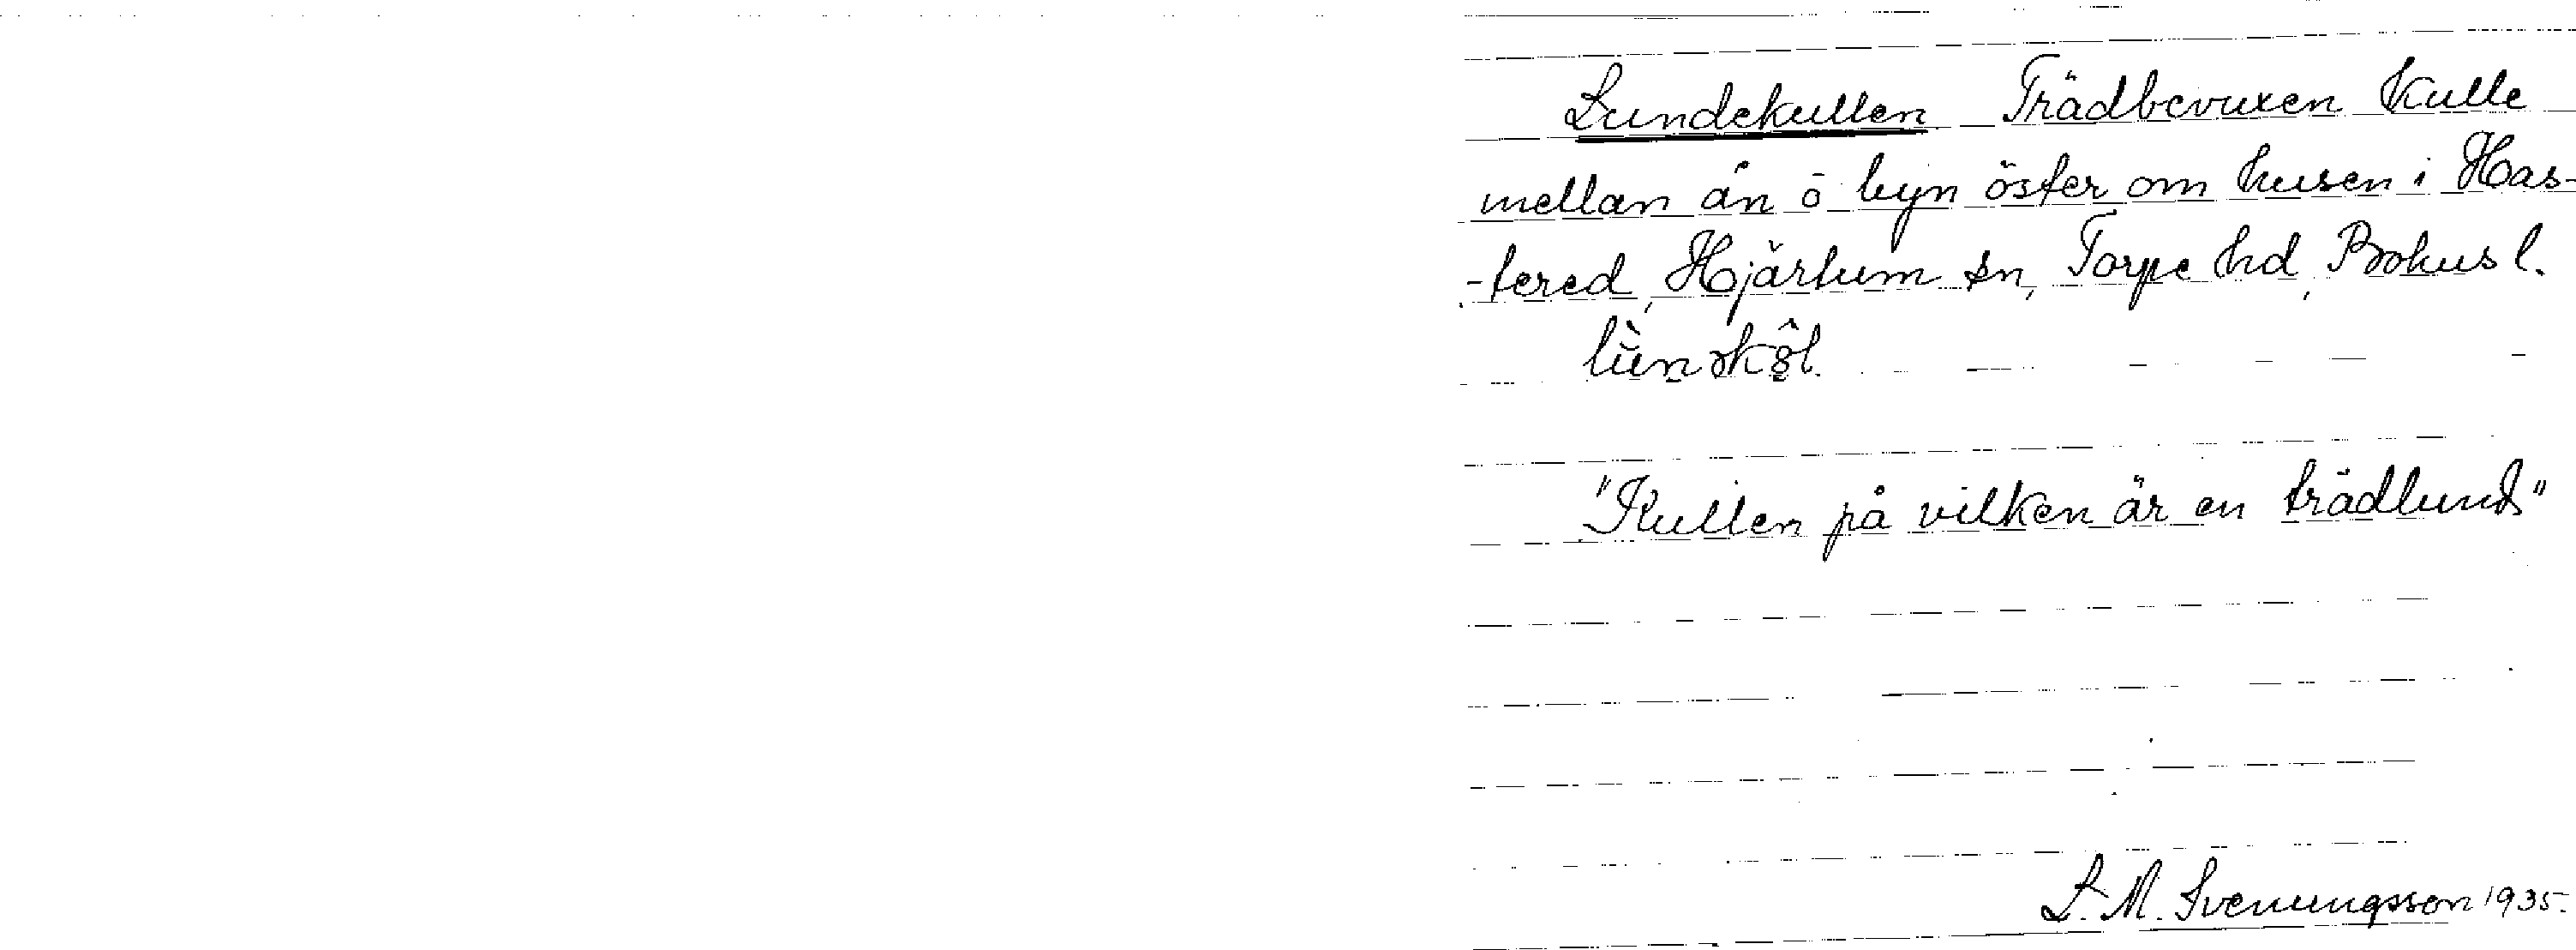 Lundekullen Trädbevuxen kulle
mellan ån ö byn öster om husen i Has-
-tered, Hjärtum sn, Torpe hd, Bohusl.
"Kullen på vilken är en trädlund"
L. M. Svenungsson 1935.